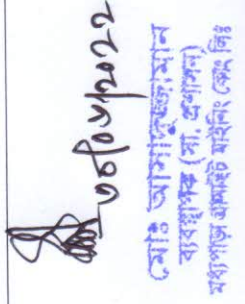 মোঃ আসাদুজ্জামান
ব্যবস্থাপক (সা. প্রশাসন)
মধ্যপাড়া গ্রানাইট মাইনিং কোং লিঃ